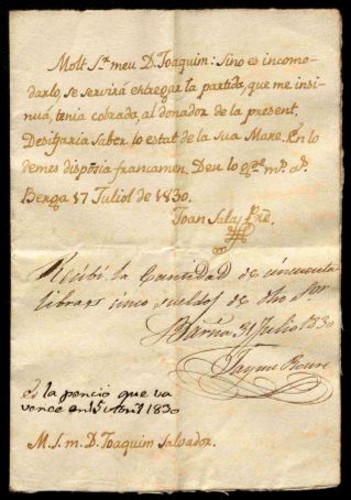 Molt Sr meu Dn Joaquim: Sino es incomo-
darlo, se servirá entregar la partida, que me insi-
nuá, tenia cobrada, al donador de la present,
Desitjaria saber lo estat de la sua Mare. En lo
demes disposia francamen. Deu lo gde ms as.
Berga 17 Juliol de 1830.
Joan Sala Bre.
Recibí la Cantidad de cincuenta
libras cinco sueldos de dho Sor
Barna 31 Julio 1830
Jayme Roure
es la pencio que va
vence en 15 Abril 1830
M. S. m. Dn Joaquim Salvador.